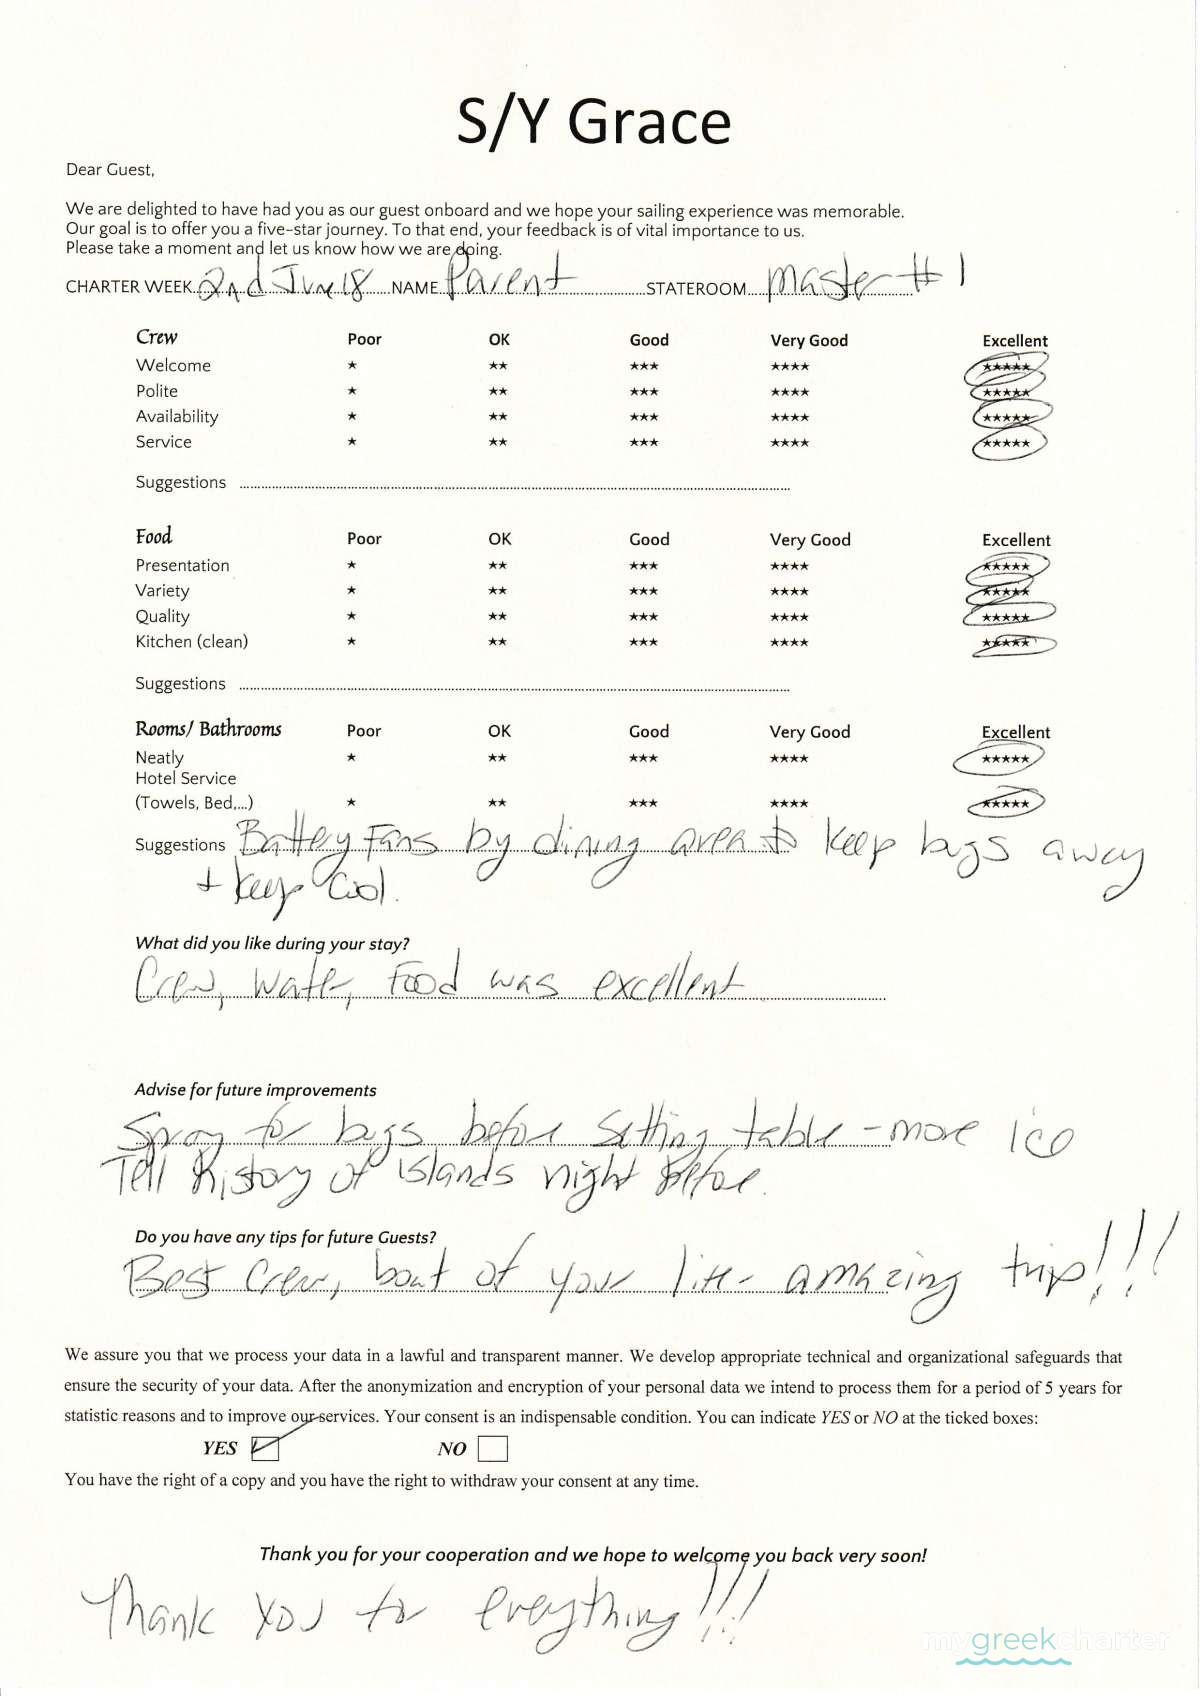 S/Y Grace
Dear Guest,
We are delighted to have had you as our guest onboard and we hope your sailing experience was memorable.
Our goal is to offer you a five-star journey. To that end, your feedback is of vital importance to us.
Please take a moment and let us know how we are doing.
CHARTER WEEK 2nd June 18 NAME Parent STATEROOM Master #1
Crew Poor OK Good Very Good Excellent
Welcome ★ ★★ ★★★ ★★★★ ★★★★★
Polite ★ ★★ ★★★ ★★★★ ★★★★★
Availability ★ ★★ ★★★ ★★★★ ★★★★★
Service ★ ★★ ★★★ ★★★★ ★★★★★
Suggestions
Food Poor OK Good Very Good Excellent
Presentation ★ ★★ ★★★ ★★★★ ★★★★★
Variety ★ ★★ ★★★ ★★★★ ★★★★★
Quality ★ ★★ ★★★ ★★★★ ★★★★★
Kitchen (clean) ★ ★★ ★★★ ★★★★ ★★★★★
Suggestions
Rooms/ Bathrooms Poor OK Good Very Good Excellent
Neatly ★ ★★ ★★★ ★★★★ ★★★★★
Hotel Service
(Towels, Bed,...) ★ ★★ ★★★ ★★★★ ★★★★★
Suggestions Battery Fans by dining area to keep bugs away
+ keep cool.
What did you like during your stay?
Crew, Water, Food was excellent
Advise for future improvements
Spray for bugs before setting table - more Ice
Tell History of islands night before.
Do you have any tips for future Guests?
Best Crew, boat of your life - amazing trip!!!
We assure you that we process your data in a lawful and transparent manner. We develop appropriate technical and organizational safeguards that
ensure the security of your data. After the anonymization and encryption of your personal data we intend to process them for a period of 5 years for
statistic reasons and to improve our services. Your consent is an indispensable condition. You can indicate YES or NO at the ticked boxes:
YES NO
You have the right of a copy and you have the right to withdraw your consent at any time.
Thank you for your cooperation and we hope to welcome you back very soon!
Thank you for everything!!!
mygreekcharter